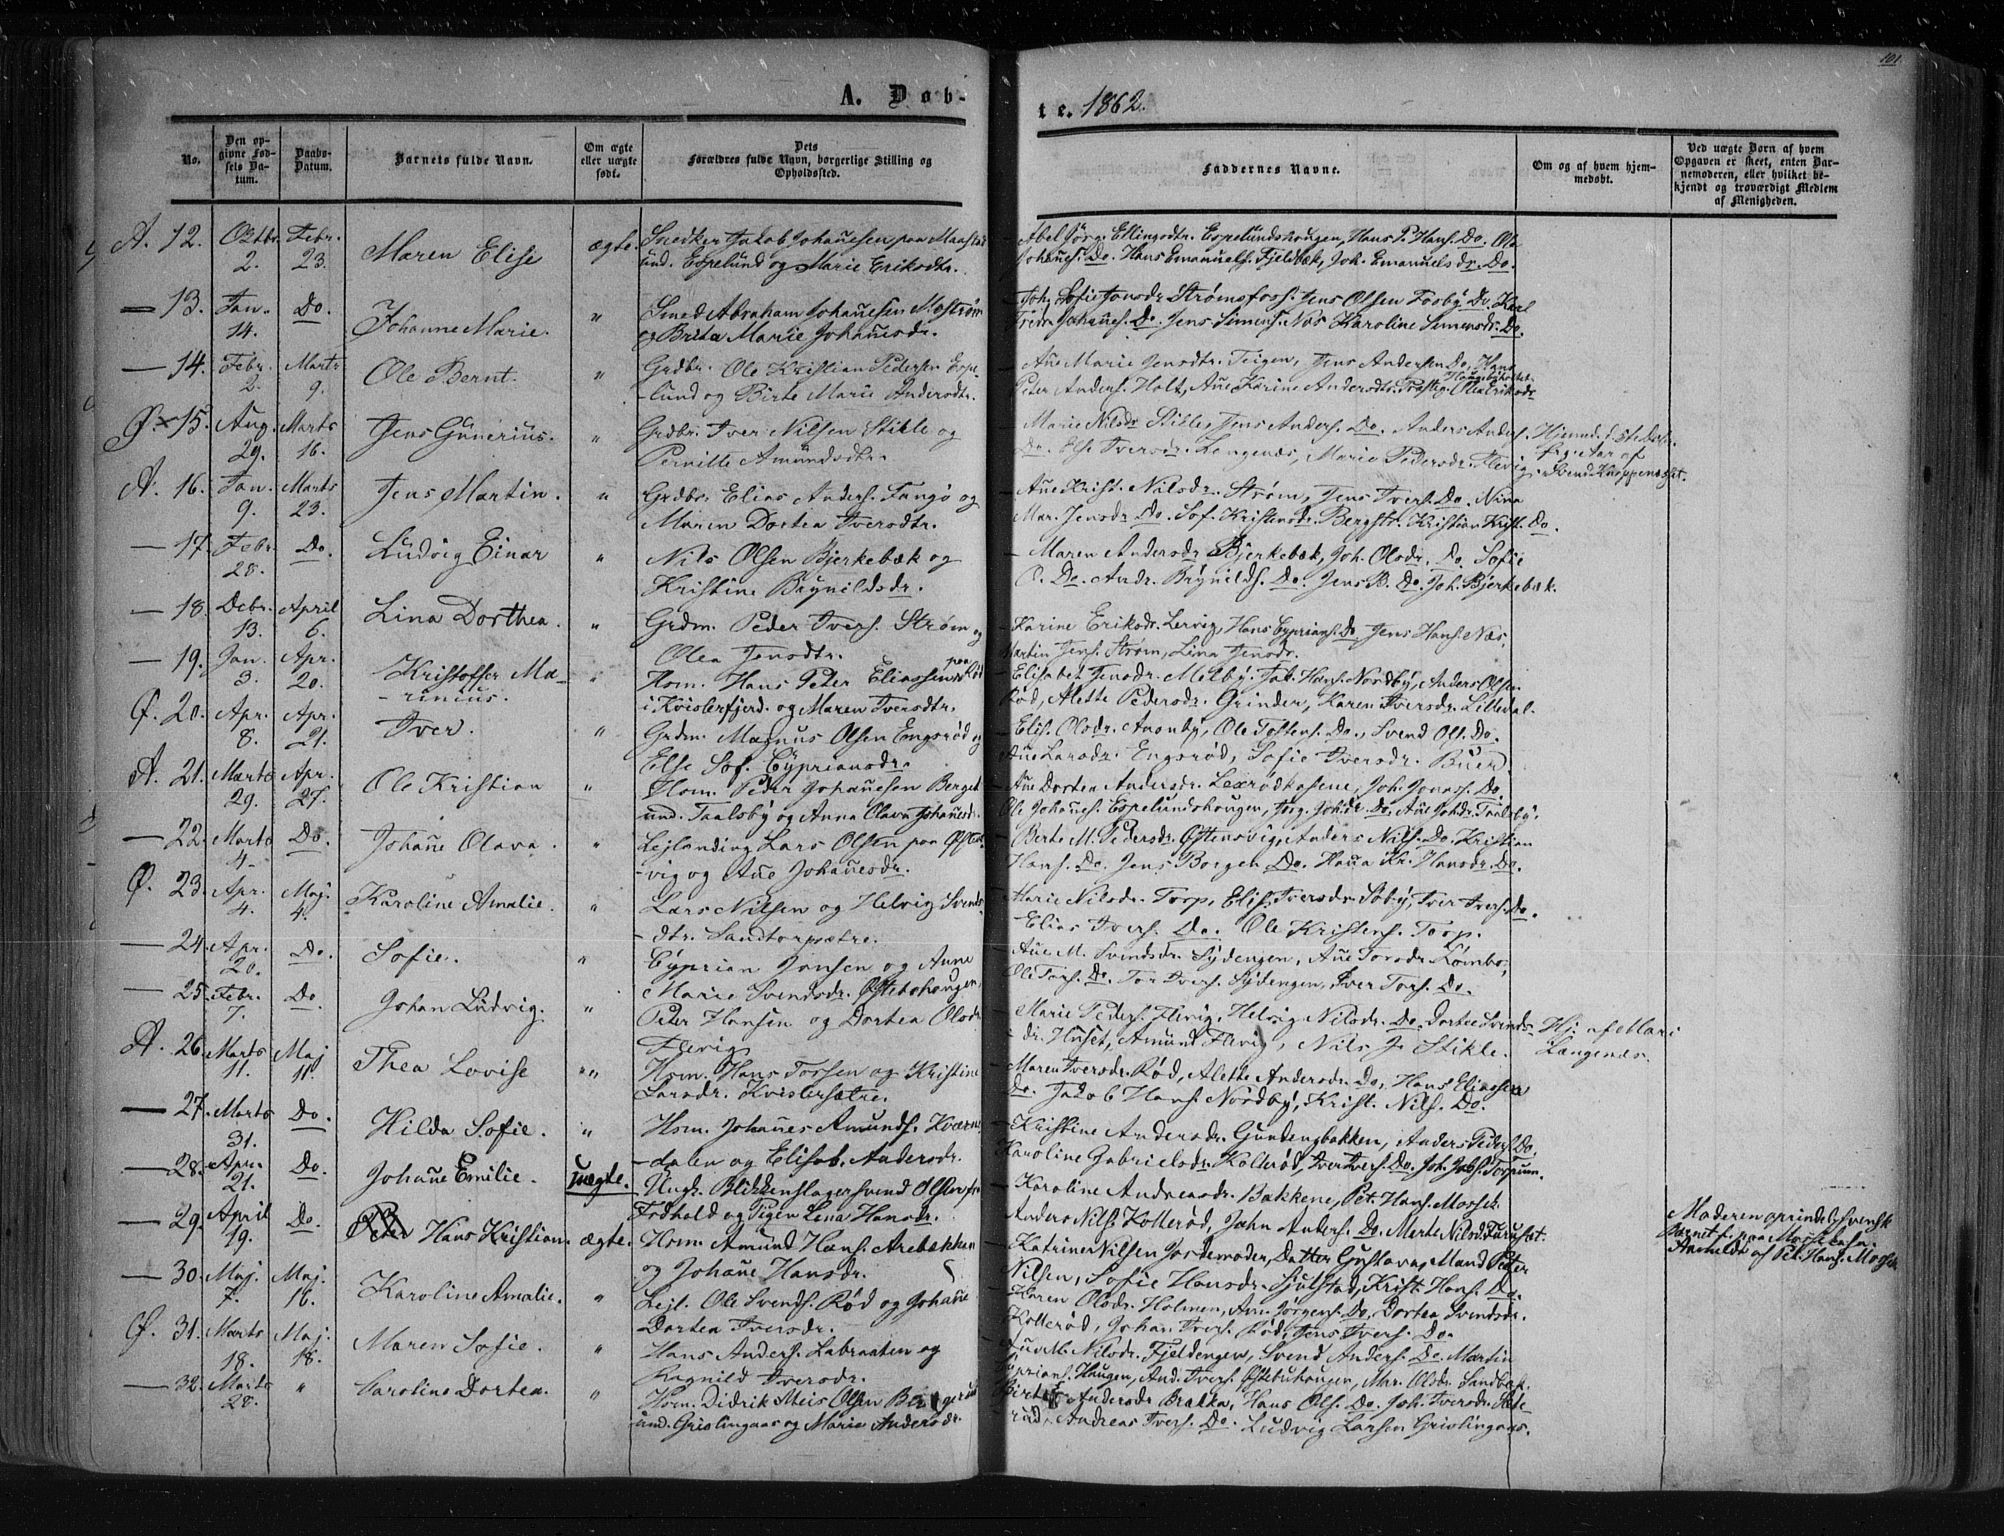 101
A. Døb-
te. 1862.
No.
Den op-
givne Fød-
sels Da-
tum.
Daabs-
Datum.
Barnets fulde Navn.
Om ægte
eller uægte
født.
Dets
Forældres fulde Navn, borgerlige Stilling og
Opholdssted.
Faddernes Navne.
Om og af hvem hjem-
medøbt.
Ved uægte Børn af hvem
Opgaven er skeet, enten Bar-
nemoderen, eller hvilket be-
kjendt og troværdigt Medlem
af Menigheden.
A. 12. Octbr. 2. Febr. 23. Maren Elise ægte.
Snedker Jakob Johañesen paa
und. Espelund og Marie Eriksdtr.
Ellingsdtr. Espelundshougen, Hans P. Hans. Do. Ole
Johañes. Do. Hans Emanuels. Fjeldbæk, Joh. Emanuelsdr. Do.
— 13. Jan. 14. Do. Johañe Marie. "
Smed Abraham Johañesen
og Brita Marie Johañesdr.
Sofie Jonsdr. Strømsfoss. Jens Olsen Fosby Do. Karl
Johañes. Do. Jens Simens. Næs Karoline Simensdr. Do.
— 14. Febr. 2. Marts 9. Ole Bernt. "
Grdbr. Ole Kristian Pedersen Espe-
lund og Birte Marie Andersdtr.
Añe Marie Jensdtr. Teigen, Jens Andersen Do. Hans
Peter Anders. Holt, Añe Karine Andersdtr.
Ø. 15. Aug. 29. Marts 16. Jens Günerius. "
Grdbr. Iver Nilsen Stikle og
Pernille Amundsdtr.
Marie Nilsdr. Stikle, Jens Anders. Do. Anders Anders.
Do. Else Iversdr. Langenæs, Marie Pedersdr. Flevig.
A. 16. Jan. 9. Marts 23. Jens Martin. "
Grdbr. Elias Anders. Tangø og
Maren Dortea Iversdtr.
Añe Krist. Nilsdr. Strøm, Jens Ivers. Do. Nina
Mar. Jensdr. Do. Sof. Kristensdr. Bergstr. Kristian Krist. Do.
— 17. Febr. 28. Do. Ludvig Einar "
Nils Olsen Bjerkebæk og
Kristine Brynildsdr.
Maren Andersdr. Bjerkebæk, Joh. Olsdr. Do. Sofie
O. Do. Andr. Brynilds. Do. Jens B. Do. Joh. Bjerkebæk.
— 18. Debr. 13. April 6. Lina Dorthea. "
Grdm. Peder Ivers. Strøm og
Olea Jensdtr.
Karine Eriksdr. Lervig, Hans Cyprians. Do. Jens Hans. Næs,
Martin Jens. Strøm, Lina Jensdr.
— 19. Jan. 3. Apr. 20. Kristoffer Ma-
rinius. "
Hsm. Hans Peter Eliassen paa Rød
i Kvislerfjerd. og Maren Iversdtr.
Elisabet Jensdr. Melby. Jak. Hans. Nordby, Anders Olsen
Rød, Alette Pedersdr. Grinder, Karen Iversdr. Lilledal.
Ø. 20. Apr. 8. Apr. 21. Iver. "
Grdm. Magnus Olsen Engsrød og
Else Sof. Cypriansdr.
Elis. Olsdr. Aronby, Ole Tostens. Do. Svend Ols. Do.
Añe Larsdr. Engsrød, Sofie Iversdr. Buer.
A. 21. Marts 29. Apr. 27. Ole Kristian "
Hsm. Peder Johañesen Berget
und. Taalsby og Anna Olava Johañesdr.
Añe Dortea Andersdr. Lexrødkasene, Joh. Jonass. Do.
Ole Johañes. Espelundshougen, Jørg. Johsdr. Do. Añe Johdr. Taalsby.
— 22. Marts 4. Do. Johañe Olava. "
Lejlænding Lars Olsen paa Østens-
vig og Añe Johañesdr.
Berte M. Pedersdr. Østensvig, Anders Nils. Do. Kristian
Hans. Do. Jens Borgen Do. Hana Kr. Hansdr. Do.
Ø. 23. Apr. 4. Maj. 4. Karoline Amalie. "
Lars Nilsen og Helvig Svends-
dtr. Sandtorpætre.
Marie Nilsdr. Torp, Elis. Iversdr. Søby, Iver Ivers. Do.
Elias Ivers. Do. Ole Kristens. Torp.
— 24. Apr. 20. Do. Sofie. "
Cyprian Jansen og Anne
Marie Svendsdr. Østebohougen,
Añe M. Svendsdr. Sydengen, Añe Torsdr. Kømbo,
Ole Tors. Do. Tor Ivers. Sydengen, Iver Tors. Do.
— 25. Febr. 7. Do. Johan Ludvig. "
Peter Hansen og Dortea Olsdr.
Flevig.
Marie Peders. Flevig, Helvig Nilsdr. Do. Dortea Svends-
dr. Huset, Amund Flevig, Nils J. Stikle.
Hj. af Mari
Langenæs.
A. 26. Marts 11. Maj 11. Thea Lovise "
Hsm. Hans Torssen og Kristine
Larsdr. Kvislersætre.
Maren Iversdr. Rød, Alette Andersdr. Do. Hans Eliassen
Do. Jakob Hans. Nordby, Krist. Nils. Do.
— 27. Marts 31. Do. Hilda Sofie. "
Hsm. Johañes Amunds. Kværn-
dalen og Elisab. Andersdr.
Kristine Andersdr. Gundengbakken, Anders Peders. Do.
Karoline Gabrielsdr. Kollerød, Iver Ivers. Do. Joh. Jons. Torpum.
— 28. Apr. 21. Do. Johañe Emilie. uægte.
Ungk. Blikkenslagersvend Olsen fr.
Fredhald og Pigen Lena Hansdr.
Karoline Andreasdr. Bakkene, Pet. Hans. Mossek.
Anders Nils. Kollerød, John Anders. Do. Marte Nilsd.
Moderen oprindel. Svensk
— 29. April 19. Do. Hans Kristian. ægte.
Hsm. Amund Hans. Arebækken
og Johañe Hansdr.
Katrine Nilsen Jordemoder, Datter Gustava, Mand Peter
Nilsen, Sofie Hansdr. Sjulstad, Krist. Hans. Do.
— 30. Maj. 7. Maj. 16. Karoline Amalie. "
Lejl. Ole Svends. Rød og Johañe
Dortea Iversdr.
Karen Olsdr. Holmen, Jørgens. Do. Dortea Svendsdr.
Kollerød, Johan Ivers. Rød, Jens Ivers. Do.
Ø. 31. Marts 18. Maj. 18. Maren Sofie. "
Hans Anders. Labraaten og
Ragnild Iversdr.
Nilsdr. Fjeldengen, Svend Anders. Do. Martin
Cyprians. Haugen, And. Ivers. Østebuhougen, Mar. Olsdr. Sandbæk.
— 32. Marts 28. " Caroline Dortea. "
Hsm. Didrik Meis Olsen
und. Grislingaas og Marie Andersdr.
Andersdr. Brække, Hans Ols. Do. Joh. Iversdr. Sæte-
rud, Andreas Ivers. Do. Ludvig Larsen Grislingaas.